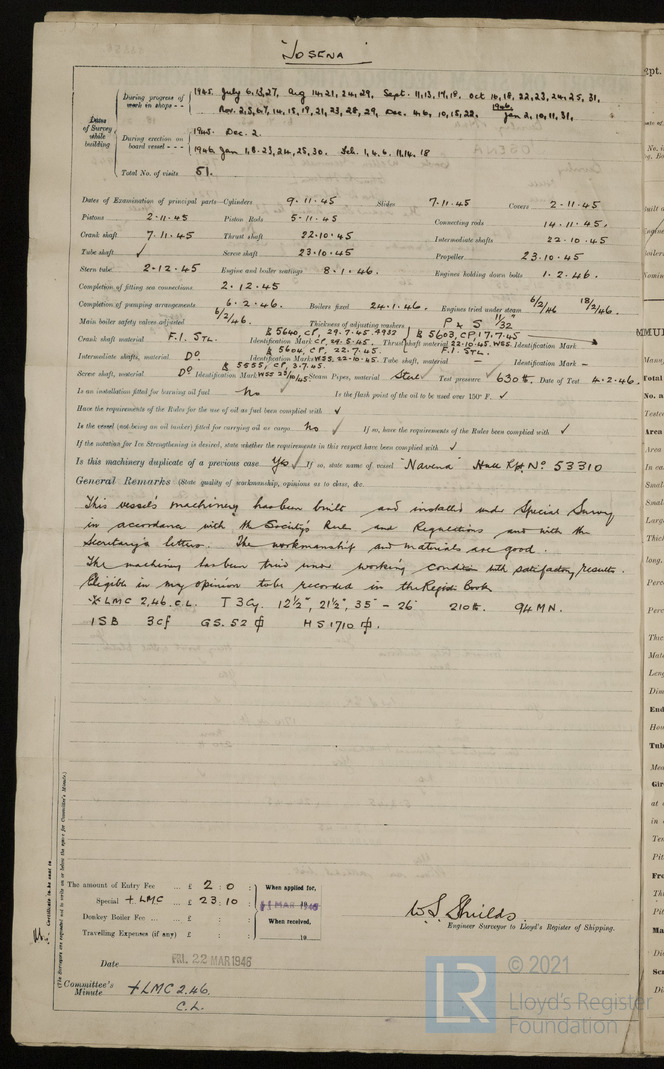 "JOSENA"
Dates of Survey while building
During progress of work in shops - - 1945. July 6,13,27, Aug 14,21,24,29, Sept. 11,13,17,18, Oct 16,18,22,23,24,25,31,
Nov. 2,5,6,7, 14,15,19,21,23,28,29, Dec. 4,6,10,15,22, 1946. Jan 2,10,11,31,
During erection on board vessel - - - 1945. Dec. 2.
1946 Jan 1,8,23,24,25,30. Feb. 1,4,6,11,14,18
Total No. of visits 51.
Dates of Examination of principal parts—Cylinders 9.11.45 Slides 7.11.45 Covers 2.11.45
Pistons 2.11.45 Piston Rods 5.11.45 Connecting rods 14.11.45,
Crank shaft 7.11.45 Thrust shaft 22.10.45 Intermediate shafts 22.10.45
Tube shaft ✓ Screw shaft 23.10.45 Propeller 23.10.45
Stern tube 2.12.45 Engine and boiler seatings 8.1.46. Engines holding down bolts 1.2.46.
Completion of fitting sea connections 2.12.45
Completion of pumping arrangements 6.2.46. Boilers fixed 24.1.46. Engines tried under steam 6/2/46 18/2/46.
Main boiler safety valves adjusted 6/2/46. Thickness of adjusting washers P & S 11/32"
Crank shaft material F.I. STL. Identification Mark 5640, CP, 29.7.45. Thrust shaft material F.I. STL. Identification Mark 5603, CP, 17.7.45
Intermediate shafts, material Do Identification Marks 5604, CP, 22.7.45. WSS. 22.10.45. Tube shaft, material - Identification Mark -
Screw shaft, material Do Identification Mark 5555, CP, 3.7.45. WSS 23/10/45 Steam Pipes, material Steel Test pressure 630 lb. Date of Test 4.2.46.
Is an installation fitted for burning oil fuel No Is the flash point of the oil to be used over 150° F. ✓
Have the requirements of the Rules for the use of oil as fuel been complied with ✓
Is the vessel (not being an oil tanker) fitted for carrying oil as cargo No ✓ If so, have the requirements of the Rules been complied with ✓
If the notation for Ice Strengthening is desired, state whether the requirements in this respect have been complied with ✓
Is this machinery duplicate of a previous case Yes ✓ If so, state name of vessel "Navena" Hull Rpt. No 53310
General Remarks (State quality of workmanship, opinions as to class, &c.
This vessel's machinery has been built and installed under Special Survey
in accordance with the Society's Rules and Regulations and with the
Secretary's letters. The workmanship and materials are good.
The machinery has been tried under working conditions with satisfactory results.
Eligible in my opinion to be recorded in the Register Book
+LMC 2,46. C.L. T 3Cy. 12½", 21½", 35" - 26" 210 lb. 94 MN.
1SB 3cf GS. 52 HS 1710
The amount of Entry Fee ... £ 2 : 0 : When applied for,
Special + LMC ... £ 23 : 10 : MAR 1946
Donkey Boiler Fee ... ... £ : : When received,
Travelling Expenses (if any) £ : : 19
W.S. Shields
Engineer Surveyor to Lloyd's Register of Shipping.
Date FRI. 22 MAR 1946
Committee's Minute +LMC 2.46.
C.L.
LR © 2021
Lloyd's Register
Foundation